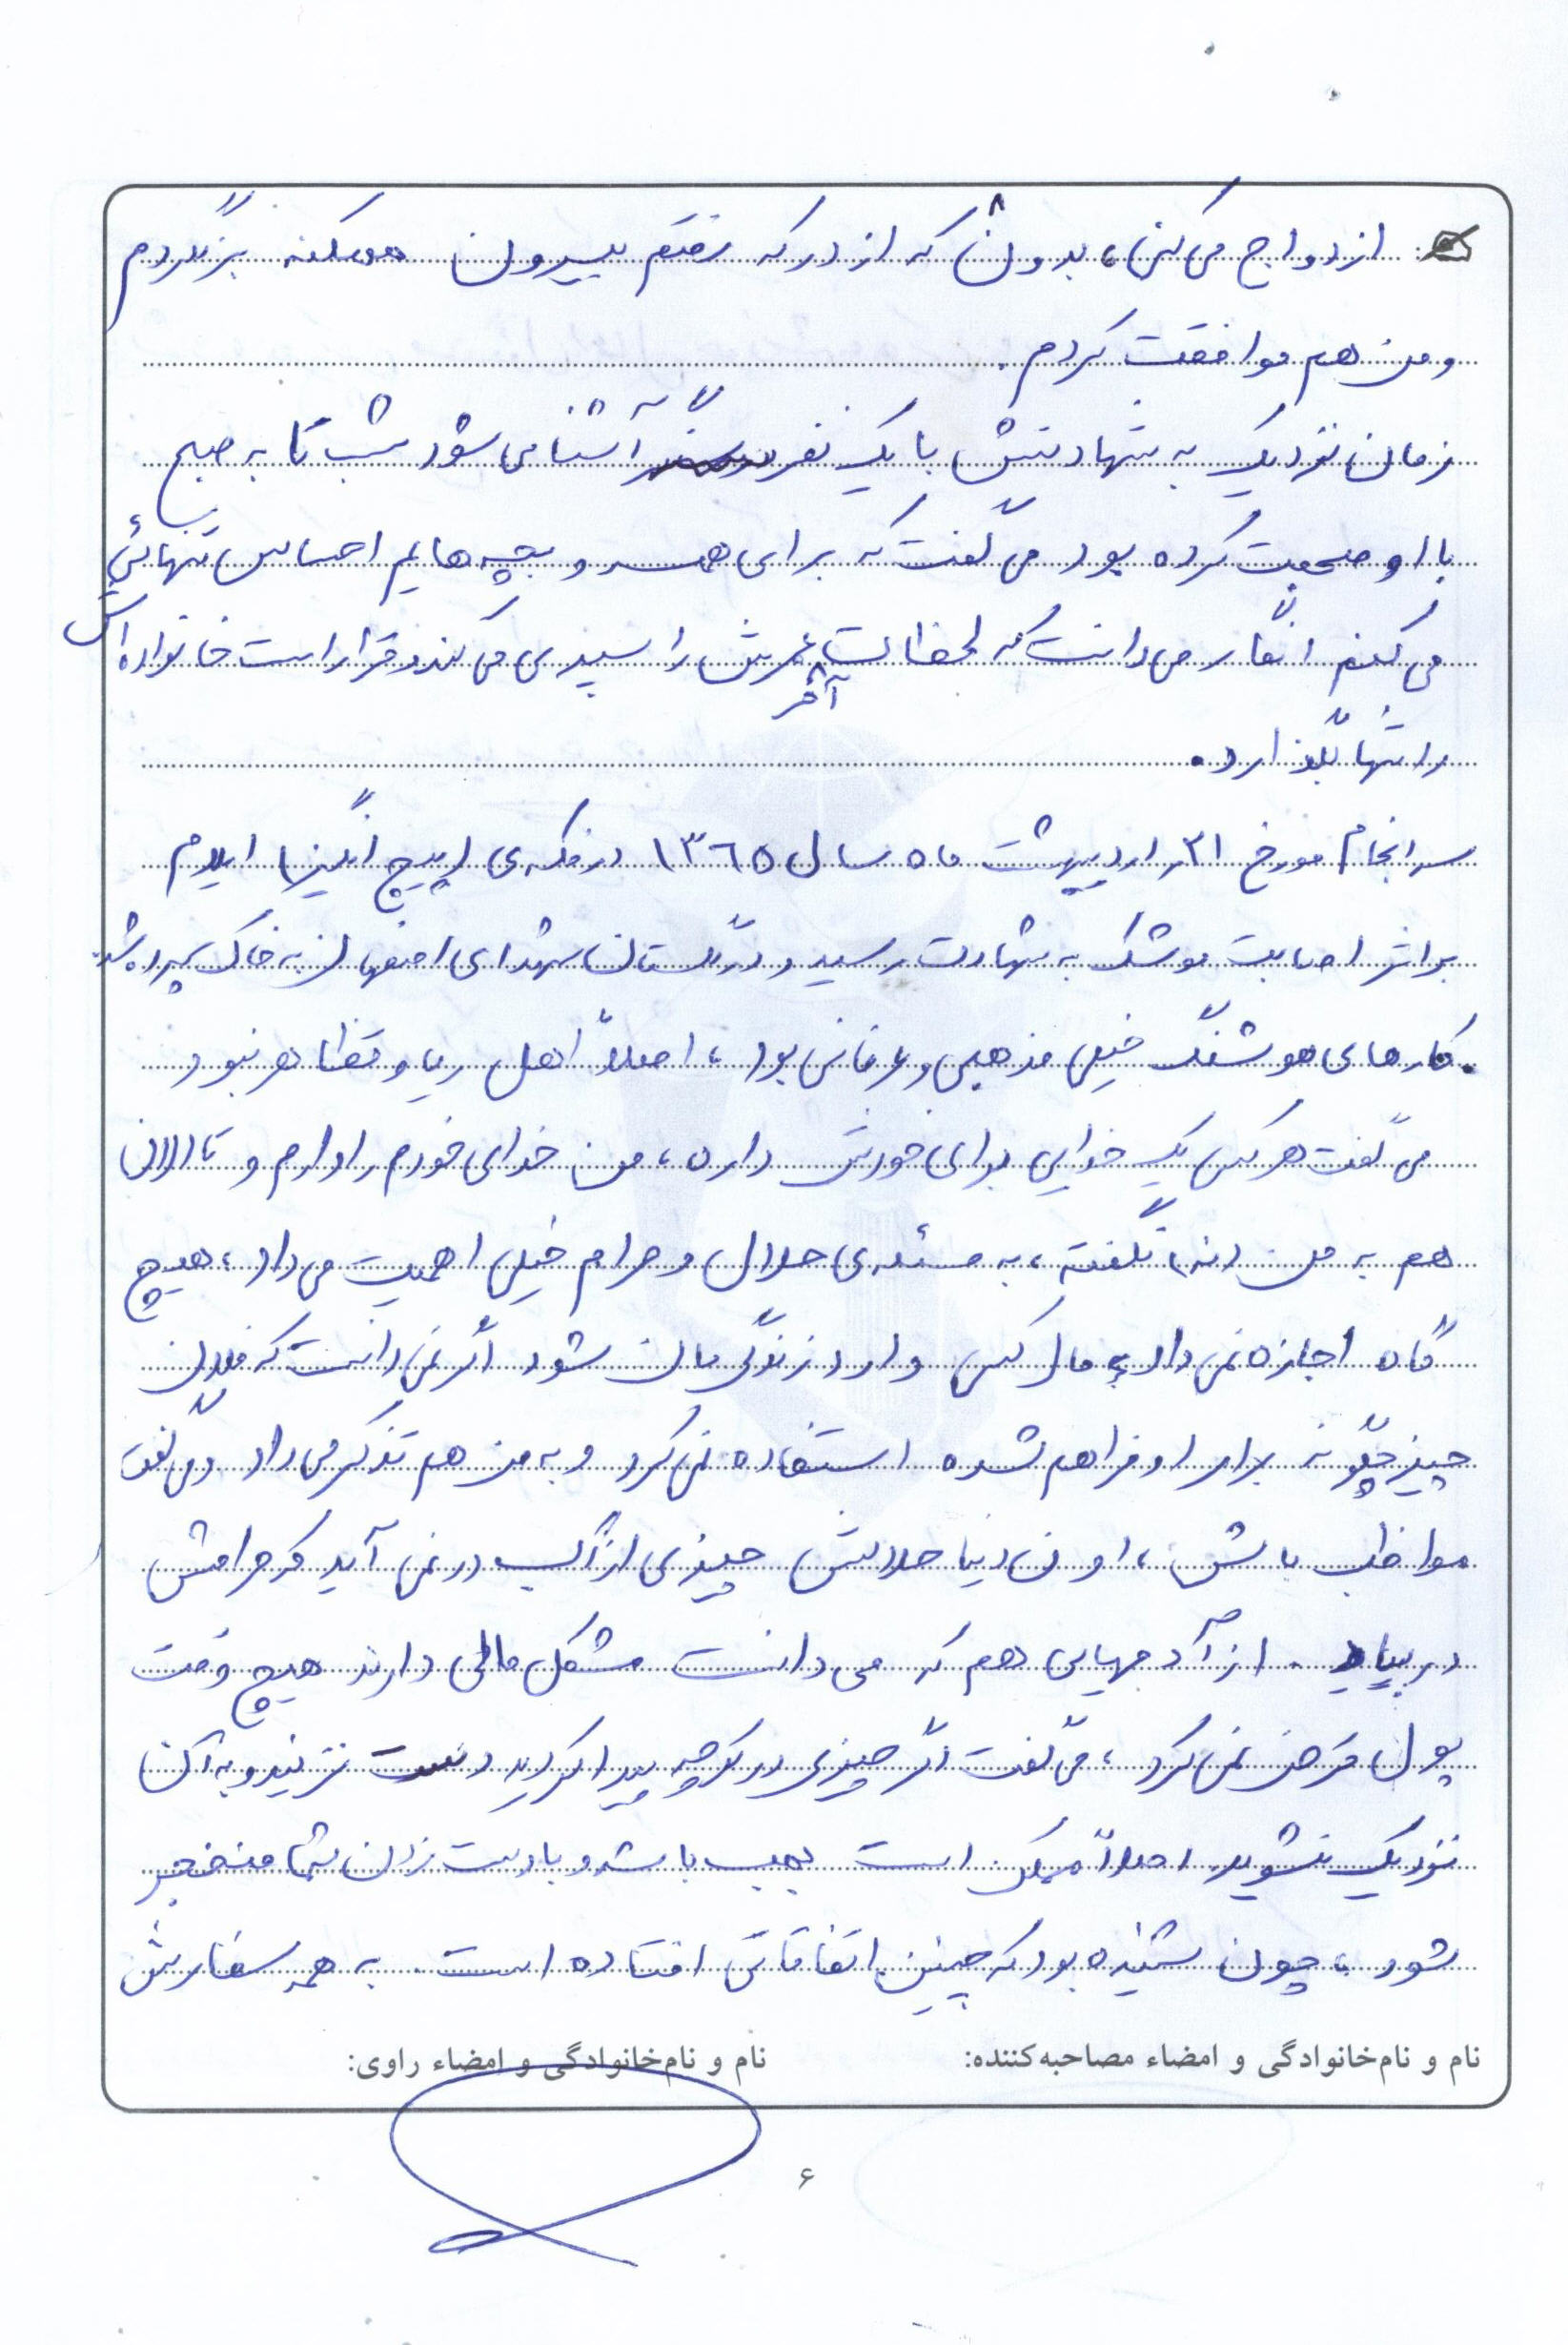 ازدواج می‌کنی، بدون که از در که رفتم بیرون ممکنه برنگردم
و من هم موافقت کردم.
زمان نزدیک به شهادتش با یک نفر آشنا می‌شود شب تا به صبح
با او صحبت کرده بود می‌گفت که برای همسر و بچه‌هایم احساس تنهائی
می‌کنم انگار می‌دانست که لحظات آخر عمرش را سپری می‌کند و قرار است خانواده‌اش
را تنها بگذارد.
سرانجام مورخ ۳۱ اردیبهشت ماه سال ۱۳۶۵ در منطقه‌ی (پیچ انگیز) ایلام
بر اثر اصابت موشک به شهادت رسید و در گلستان شهدای اصفهان به خاک سپرده شد
. کارهای هوشنگ خیلی مذهبی و عرفانی بود، اصلاً اهل ریا و تظاهر نبود
می‌گفت هر کس یک خدایی برای خودش داره، من خدای خودم را دارم و تا الان
هم به من (نه) نگفته، به مسئله‌ی حلال و حرام خیلی اهمیت می‌داد، هیچ
گاه اجازه نمی‌داد مال کسی وارد زندگی‌مان شود اگر نمی‌دانست که فلان
چیز چگونه برای او فراهم شده استفاده نمی‌کرد و به من هم تذکر می‌داد و می‌گفت
مواظب باش، اون دنیا حلالش چیزی از آب در نمی‌آید که حرامش
در بیاید. از آدمهایی هم که می‌دانست مشکل مالی دارند هیچ وقت
پول قرض نمی‌کرد، می‌گفت اگر چیزی در کوچه پیدا کردید دست نزنید و به آن
نزدیک نشوید، اصلاً ممکن است بمب باشد و با دست زدن شما منفجر
شود، چون شنیده بود که چنین اتفاقاتی افتاده است. به همه سفارش
نام و نام‌خانوادگی و امضاء مصاحبه‌کننده: نام و نام‌خانوادگی و امضاء راوی:
۶